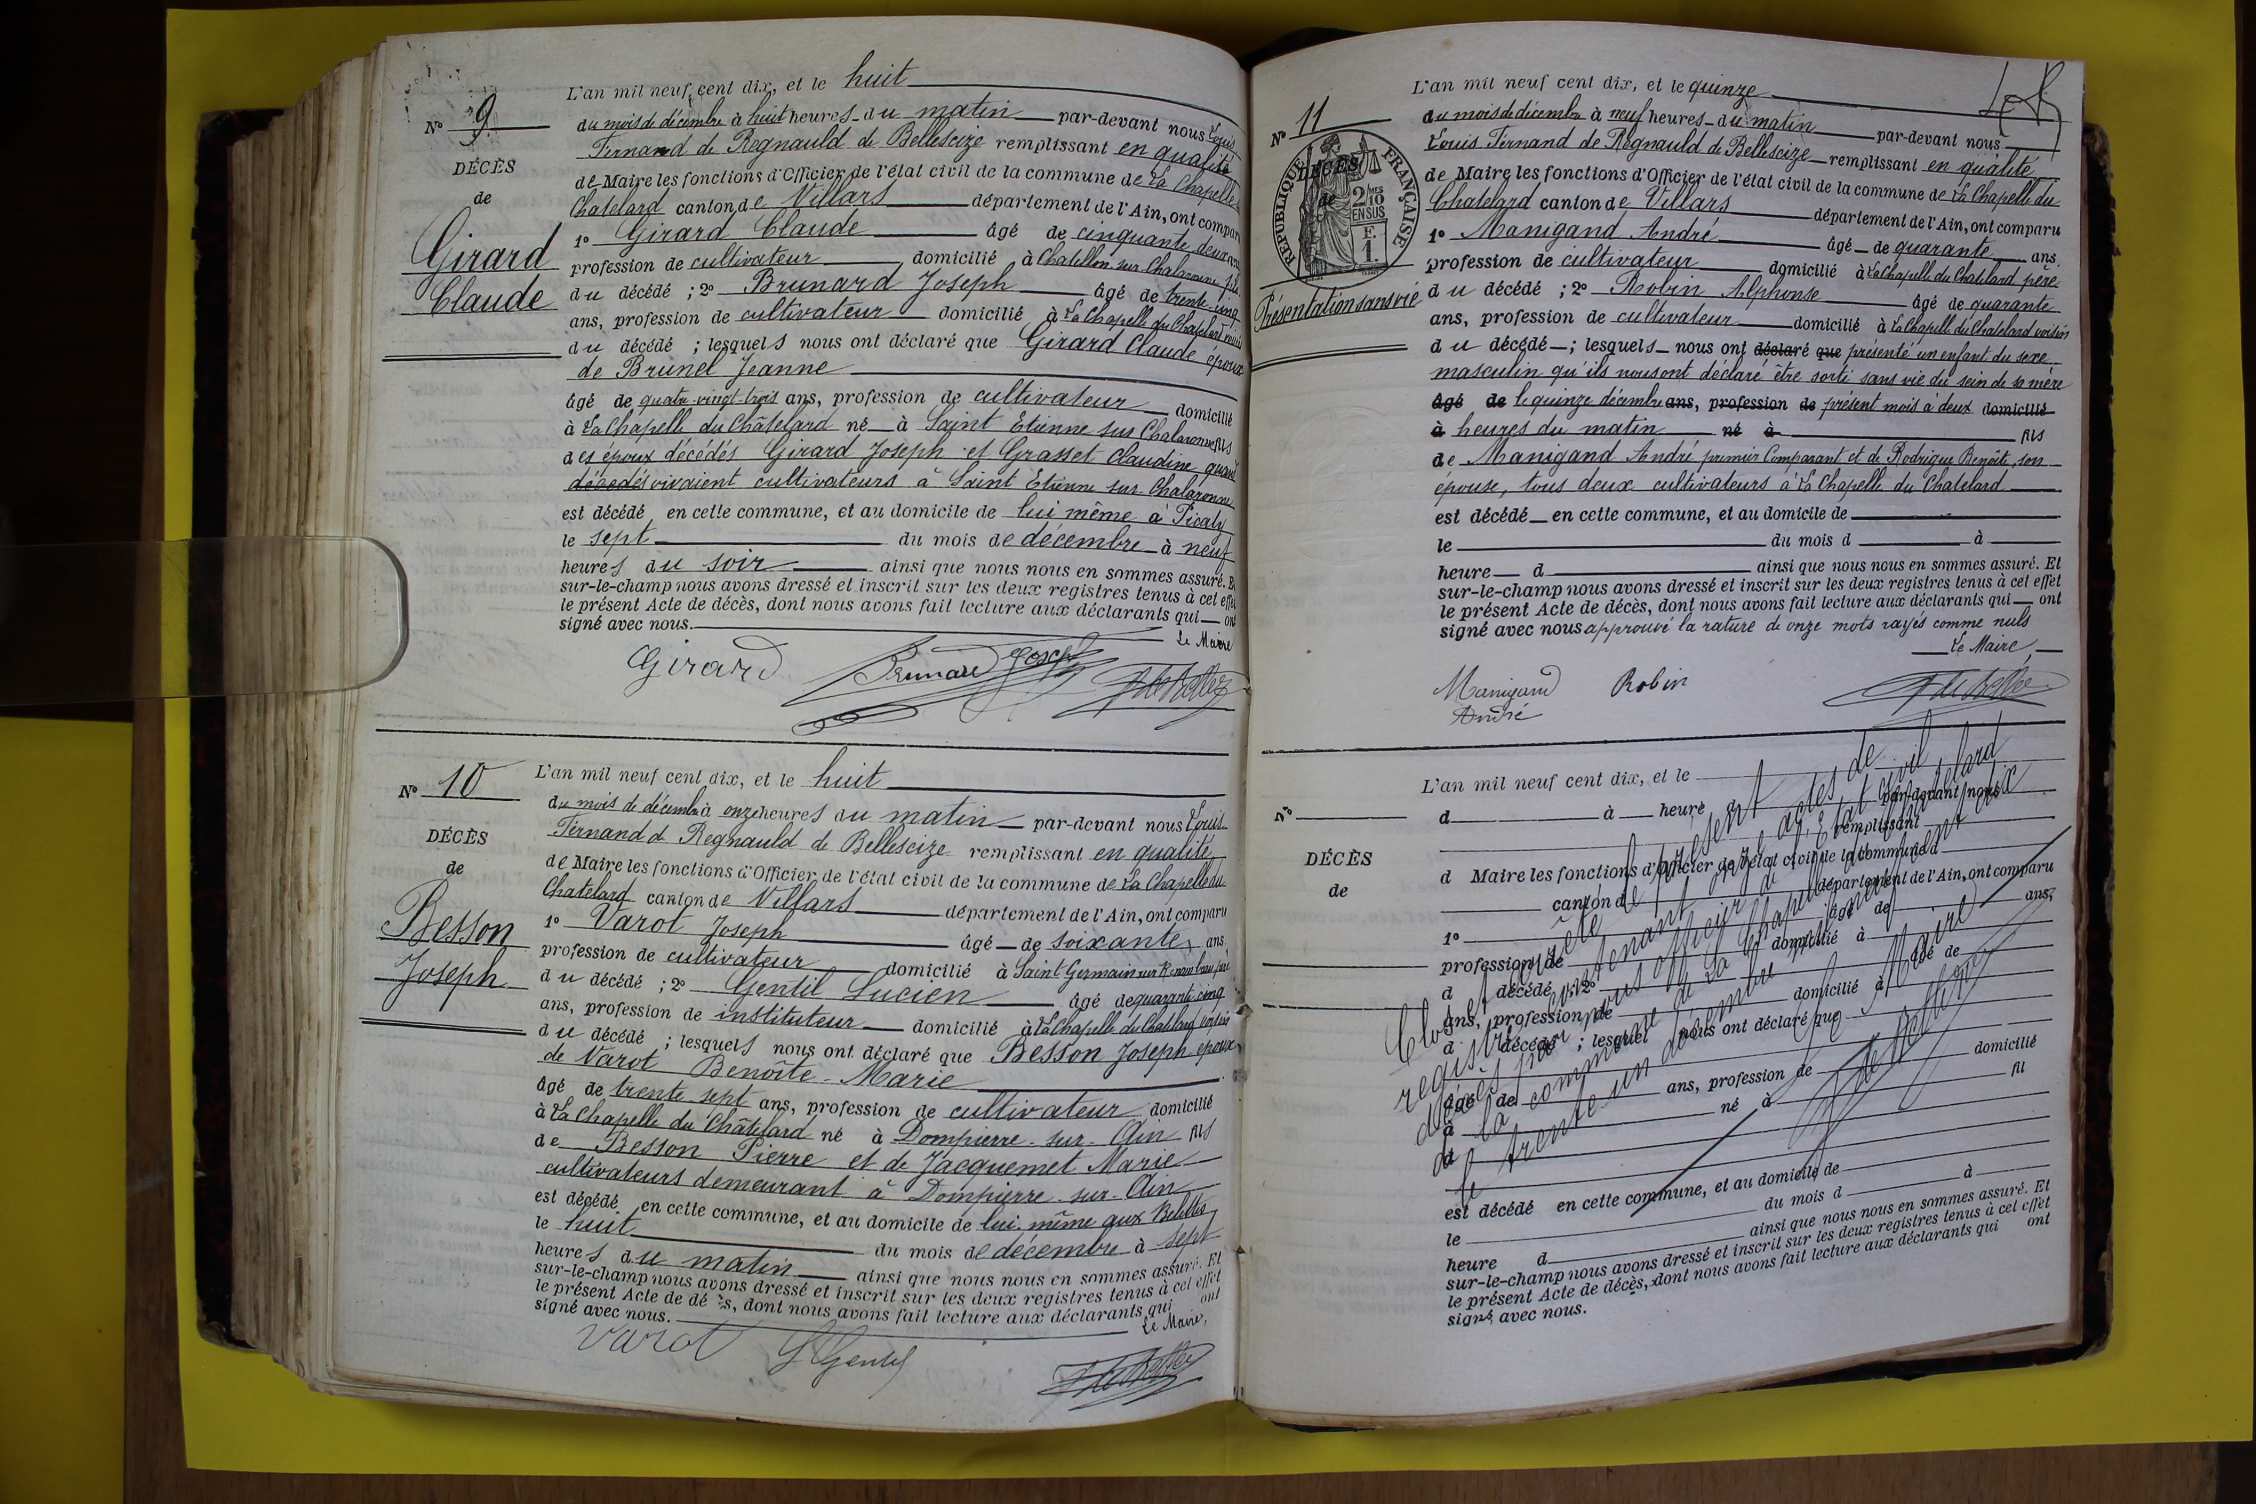 No 9
DÉCÈS
de
Girard
Claude
L'an mil neuf cent dix, et le huit
du mois de décembre à huit heures du matin par-devant nous Louis
Fernand de Regnauld de Bellescize remplissant en qualité
de Maire les fonctions d'Officier de l'état civil de la commune de La Chapelle du
Chatelard canton de Villars département de l'Ain, ont comparu
1o Girard Claude âgé de cinquante deux ans
profession de cultivateur domicilié à Chatillon sur Chalaronne fils
du décédé ; 2o Brunard Joseph âgé de trente cinq
ans, profession de cultivateur domicilié à La Chapelle du Chatelard voisin
du décédé ; lesquels nous ont déclaré que Girard Claude époux
de Brunel Jeanne
âgé de quatre-vingt trois ans, profession de cultivateur domicilié
à La Chapelle du Châtelard né à Saint Etienne sur Chalaronne fils
des époux décédés Girard Joseph et Grasset Claudine quand
décédés vivaient cultivateurs à Saint Etienne sur Chalaronne
est décédé en cette commune, et au domicile de lui même à Picaly
le sept du mois de décembre à neuf
heures du soir ainsi que nous nous en sommes assuré. Et
sur-le-champ nous avons dressé et inscrit sur les deux registres tenus à cet effet
le présent Acte de décès, dont nous avons fait lecture aux déclarants qui ont
signé avec nous.
Le Maire
Girard Brunard Joseph
No 10
DÉCÈS
de
Besson
Joseph
L'an mil neuf cent dix, et le huit
du mois de décembre à onze heures du matin par-devant nous Louis
Fernand d Regnauld de Bellescize remplissant en qualité
de Maire les fonctions d'Officier de l'état civil de la commune de La Chapelle du
Chatelard canton de Villars département de l'Ain, ont comparu
1o Varot Joseph âgé de soixante ans
profession de cultivateur domicilié à Saint Germain sur Renon beau père
du décédé ; 2o Gentil Lucien âgé de quarante cinq
ans, profession de instituteur domicilié à La Chapelle du Chatelard voisin
du décédé ; lesquels nous ont déclaré que Besson Joseph époux
de Varot Benoîte-Marie
âgé de trente sept ans, profession de cultivateur domicilié
à La Chapelle du Châtelard né à Dompierre-sur-Ain fils
de Besson Pierre et de Jacquemet Marie
cultivateurs demeurant à Dompierre-sur-Ain
est décédé en cette commune, et au domicile de lui même aux
le huit du mois de décembre à sept
heures du matin ainsi que nous nous en sommes assuré. Et
sur-le-champ nous avons dressé et inscrit sur les deux registres tenus à cet effet
le présent Acte de décès, dont nous avons fait lecture aux déclarants qui ont
signé avec nous.
Le Maire,
Varot LGentil
No 11
DÉCÈS
de
RÉPUBLIQUE FRANÇAISE
2/10MES
EN SUS
F.
1.
Présentation sans vie
L'an mil neuf cent dix, et le quinze
du mois de décembre à neuf heures du matin par-devant nous
Louis Fernand de Regnauld de Bellescize remplissant en qualité
de Maire les fonctions d'Officier de l'état civil de la commune de La Chapelle du
Chatelard canton de Villars département de l'Ain, ont comparu
1o Manigand André âgé de quarante ans
profession de cultivateur domicilié à La Chapelle du Chatelard père
du décédé ; 2o Robin Alphonse âgé de quarante
ans, profession de cultivateur domicilié à La Chapelle du Chatelard voisin
du décédé ; lesquels nous ont déclaré que présenté un enfant du sexe
masculin qu'ils nous ont déclaré être sorti sans vie du sein de sa mère
âgé de le quinze décembre ans, profession de présent mois à deux domicilié
à heures du matin né à fils
de Manigand André premier Comparant et de Rodrigue Benoîte, son
épouse, tous deux cultivateurs à La Chapelle du Chatelard
est décédé en cette commune, et au domicile de
le du mois d à
heure d ainsi que nous nous en sommes assuré. Et
sur-le-champ nous avons dressé et inscrit sur les deux registres tenus à cet effet
le présent Acte de décès, dont nous avons fait lecture aux déclarants qui ont
signé avec nous approuvé la rature de onze mots rayés comme nuls
Le Maire,
Manigand Robin
André
No
DÉCÈS
de
L'an mil neuf cent dix, et le
d à heure par-devant nous
remplissant
d Maire les fonctions d'Officier de l'état civil de la commune d
canton d département de l'Ain, ont comparu
1o âgé de ans,
profession de domicilié à
d décédé ; 2o âgé de
ans, profession de domicilié à
d décédé ; lesquel nous ont déclaré que
âgé de ans, profession de domicilié
à né à fil
d
est décédé en cette commune, et au domicile de
le du mois d à
heure d ainsi que nous nous en sommes assuré. Et
sur-le-champ nous avons dressé et inscrit sur les deux registres tenus à cet effet
le présent Acte de décès, dont nous avons fait lecture aux déclarants qui ont
signé avec nous.
Clos et arrêté le présent
registre contenant onze actes de
décès par nous officier de l'Etat civil
de la commune de La Chapelle du Chatelard
le trente un décembre mil neuf cent dix
Le Maire